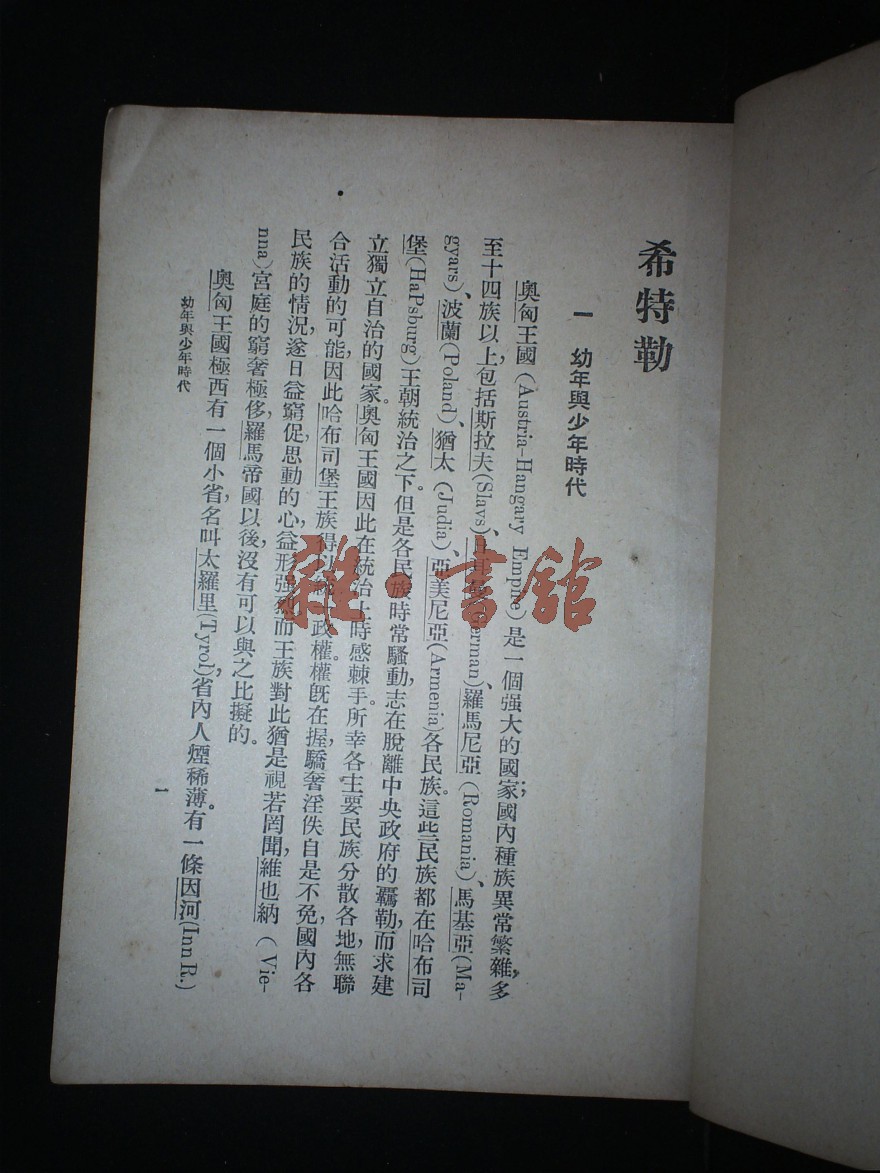 希特勒
一 幼年與少年時代
奧匈王國(Austria-Hangary Empire)是一個强大的國家;國內種族異常繁雜,多
至十四族以上,包括斯拉夫(Slavs)、German)、羅馬尼亞(Romania)、馬基亞(Ma-
gyars)、波蘭(Poland)、猶太(Judia)、亞美尼亞(Armenia)各民族。這些民族都在哈布司
堡(HaPsburg)王朝統治之下。但是各民族時常騷動,志在脫離中央政府的羈勒,而求建
立獨立自治的國家。奧匈王國因此在統治上時感棘手。所幸各主要民族分散各地,無聯
合活動的可能,因此哈布司堡王族得以政權。權旣在握,驕奢淫佚自是不免,國內各
民族的情況,遂日益窮促,思動的心,益形强而王族對此猶是視若罔聞,維也納(Vie-
nna)宮庭的窮奢極侈,羅馬帝國以後,沒有可以與之比擬的。
奧匈王國極西有一個小省,名叫太羅里(Tyrol),省內人煙稀薄。有一條因河(Inn R.)
幼年與少年時代
一
雜·書館